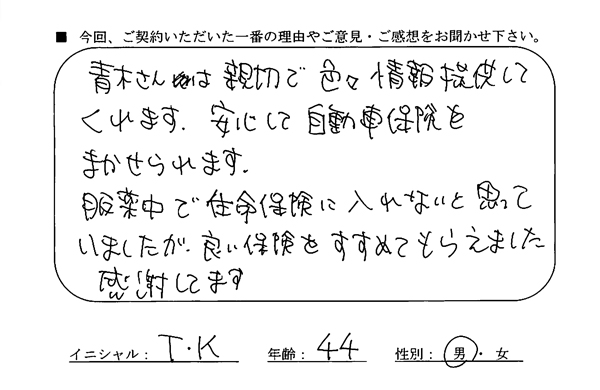 ■ 今回、ご契約いただいた一番の理由やご意見・ご感想をお聞かせ下さい。
青木さんは親切で色々情報提供して
くれます。安心して自動車保険を
まかせられます。
服薬中で生命保険に入れないと思って
いましたが、良い保険をすすめてもらえました
感謝してます
イニシャル： T・K 年齢： 44 性別： 男・女